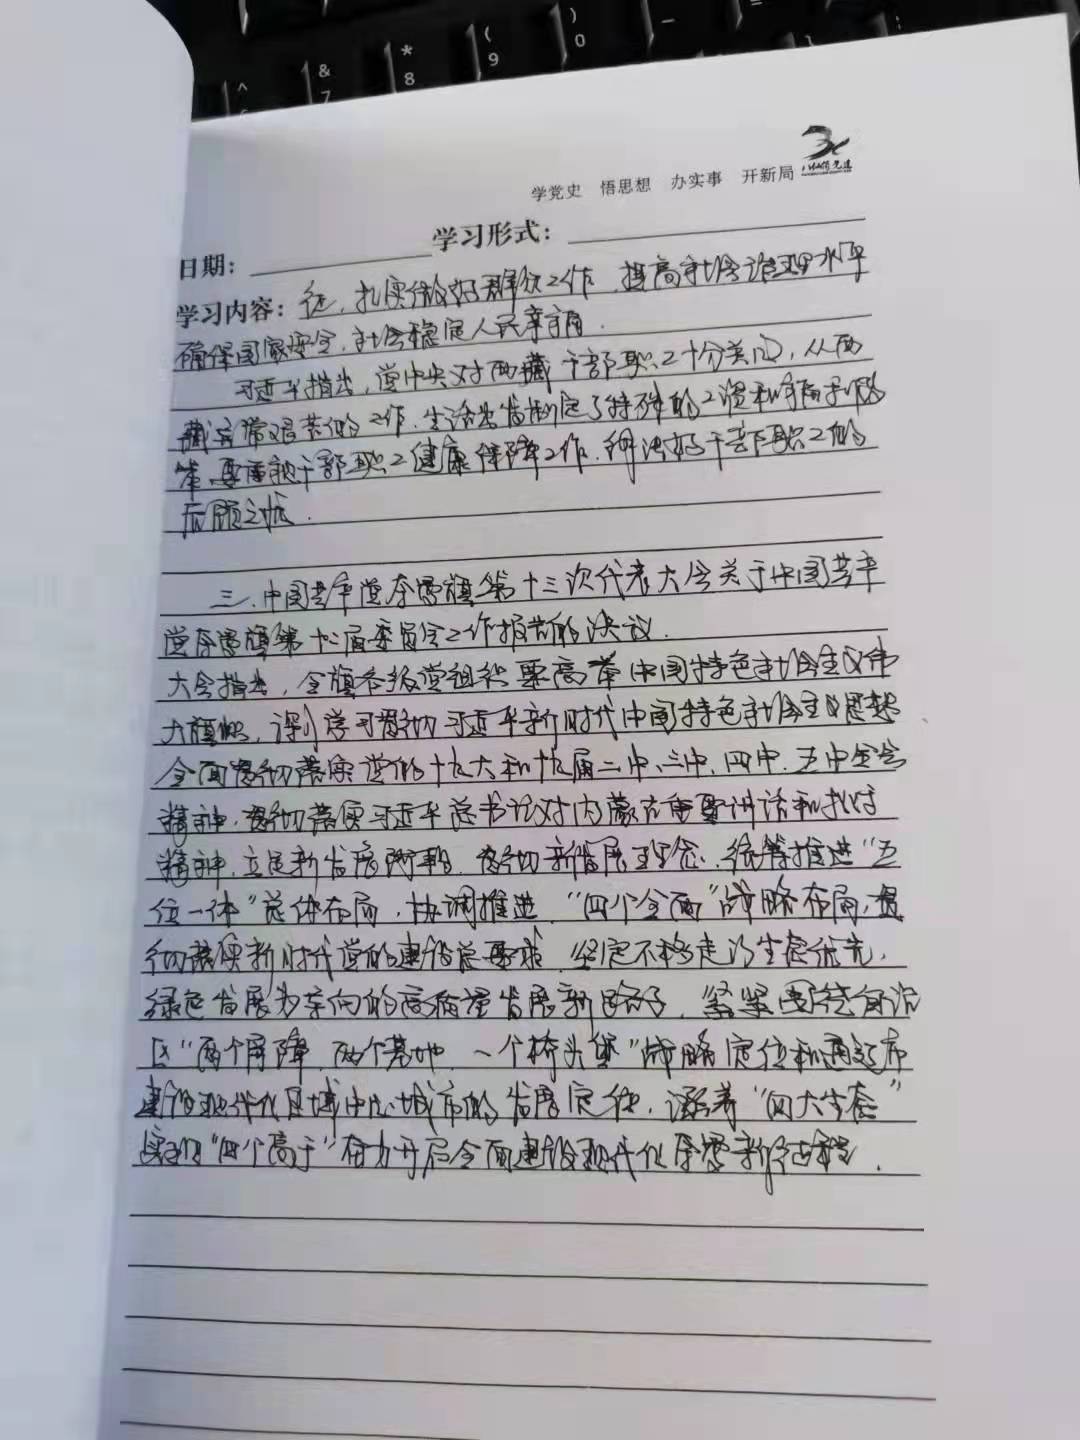 学党史 悟思想 办实事 开新局
日期： 学习形式：
学习内容：征，扎实做好群众工作，提高社会治理水平
确保国家安全，社会稳定人民幸福．
习近平指出，党中央对西藏干部职工十分关心，从西
藏异常艰苦的工作．生活出发制定了特殊的工资和福利政
策，要重视干部职工健康保障工作．解决好干部职工的
后顾之忧．
三．中国共产党奈曼旗第十三次代表大会关于中国共产
党奈曼旗第十二届委员会工作报告的决议．
大会指出，全旗各级党组织要高举中国特色社会主义伟
大旗帜，深入学习贯彻习近平新时代中国特色社会主义思想
全面贯彻落实党的十九大和十九届二中、三中、四中．五中全会
精神．贯彻落实习近平总书记对内蒙古重要讲话和批示
精神，立足新发展阶段．贯彻新发展理念．统筹推进“五
位一体”总体布局，协调推进．“四个全面”战略布局，贯
彻落实新时代党的建设总要求．坚定不移走以生态优先，
绿色发展为导向的高质量发展新路子，紧紧围绕自治
区“两个屏障．两个基地．一个桥头堡”战略定位和通辽市
建设现代化区域中心城市的发展定位，涵养“四大生态”
实现“四个高于”奋力开启全面建设现代化奈曼新征程．